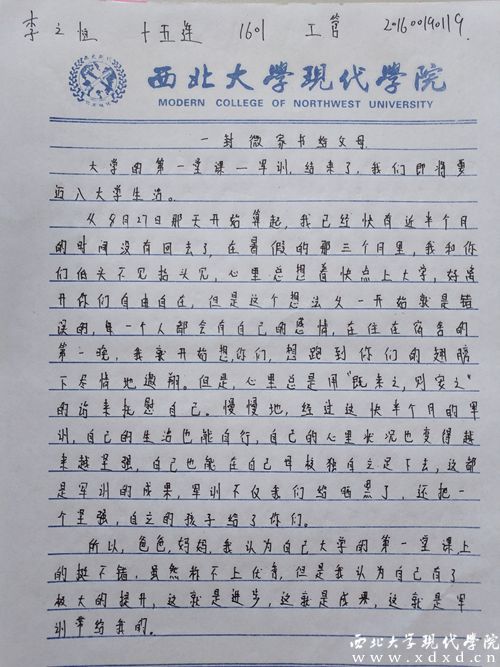 李之恒 十五连 1601 工管 201600190119
西北大學現代學院
MODERN COLLEGE OF NORTHWEST UNIVERSITY
一封微家书给父母
大学的第一堂课—军训,结束了,我们即将要
迈入大学生活。
从8月27日那天开始算起,我已经快有近半个月
的时间没有回去了,在暑假的那三个月里,我和你
们低头不见抬头见,心里总想着快点上大学,好离
开你们自由自在,但是这个想法从一开始就是错
误的,每一个人都会有自己的感情,在住在宿舍的
第一晚,我就开始想你们,想跑到你们的翅膀
下尽情地遨翔。但是,心里总是用“既来之,则安之”
的话来抚慰自己。慢慢地,经过这快半个月的军
训,自己的生活也能自行,自己的心里状况也变得越
来越坚强,自己也能在自己母校独自立足下去,这都
是军训的成果,军训不仅我们给晒黑了,还把一
个坚强,自立的孩子给了你们。
所以,爸爸,妈妈,我认为自己大学的第一堂课上
的挺不错,虽然称不上优秀,但是我认为自己有了
极大的提升,这就是进步,这就是成果,这就是军
训带给我的。
西北大学现代学院
www.xdxd.cn